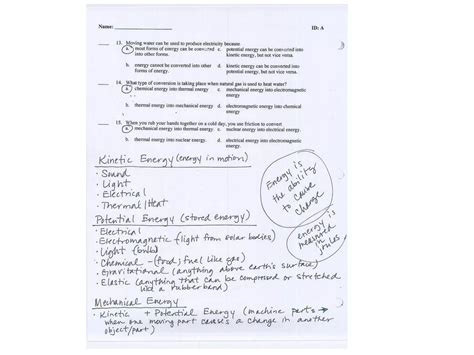 Name: ID: A
13. Moving water can be used to produce electricity because
a. most forms of energy can be converted into other forms.
c. potential energy can be converted into kinetic energy, but not vice versa.
b. energy cannot be converted into other forms of energy.
d. kinetic energy can be converted into potential energy, but not vice versa.
14. What type of conversion is taking place when natural gas is used to heat water?
a. chemical energy into thermal energy
c. mechanical energy into electromagnetic energy
b. thermal energy into mechanical energy
d. electromagnetic energy into chemical energy
15. When you rub your hands together on a cold day, you use friction to convert
a. mechanical energy into thermal energy.
c. nuclear energy into electrical energy.
b. thermal energy into nuclear energy.
d. electrical energy into electromagnetic energy.
Kinetic Energy (energy in motion)
• Sound
• Light
• Electrical
• Thermal/Heat
Energy is
the ability
to cause
change
Potential Energy (stored energy)
• Electrical
• Electromagnetic (light from solar bodies)
• Light (bulbs)
• Chemical - (food; fuel like gas)
• Gravitational (anything above earth's surface)
• Elastic (anything that can be compressed or stretched
like a rubberband)
energy is
measured
in
joules
Mechanical Energy
• Kinetic + Potential Energy (machine parts →
when one moving part causes a change in another
object/part)